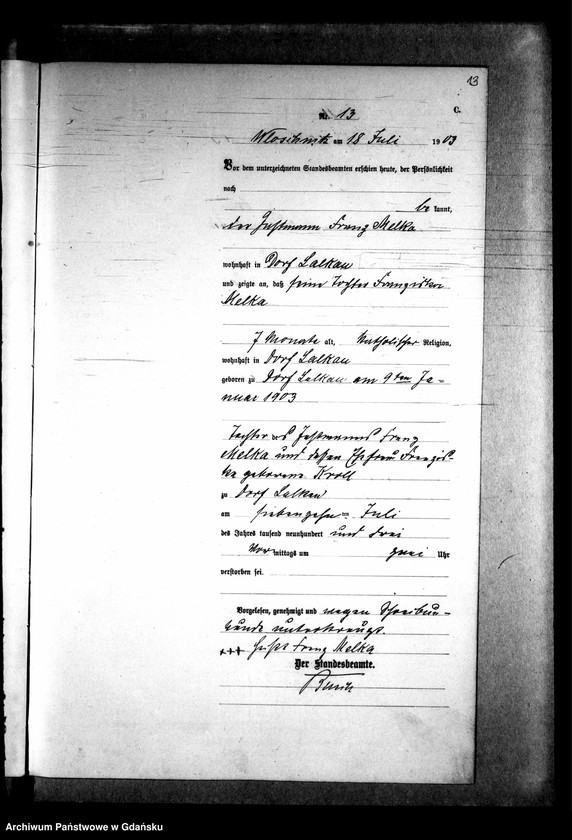 13
C.
Nr. 13
Wloschnitz am 18 Juli 1903
Vor dem unterzeichneten Standesbeamten erschien heute, der Persönlichkeit
nach
be kannt,
der Instmann Franz Melka
wohnhaft in Dorf Lalkau
und zeigte an, daß seine Tochter Franziska
Melka
7 Monate alt, Katholischer Religion,
wohnhaft in Dorf Lalkau
geboren zu Dorf Lalkau am 9ten Ja-
nuar 1903
Tochter des Instmanns Franz
Melka und dessen Ehefrau Franzis-
ka geborene Kroll
zu Dorf Lalkau
am siebenzehn Juli
des Jahres tausend neunhundert und drei
Vor mittags um zwei Uhr
verstorben sei.
Vorgelesen, genehmigt und wegen Schreibun-
kunde unterkreuzt.
+++ Franz Melka
Der Standesbeamte.
Archiwum Państwowe w Gdańsku